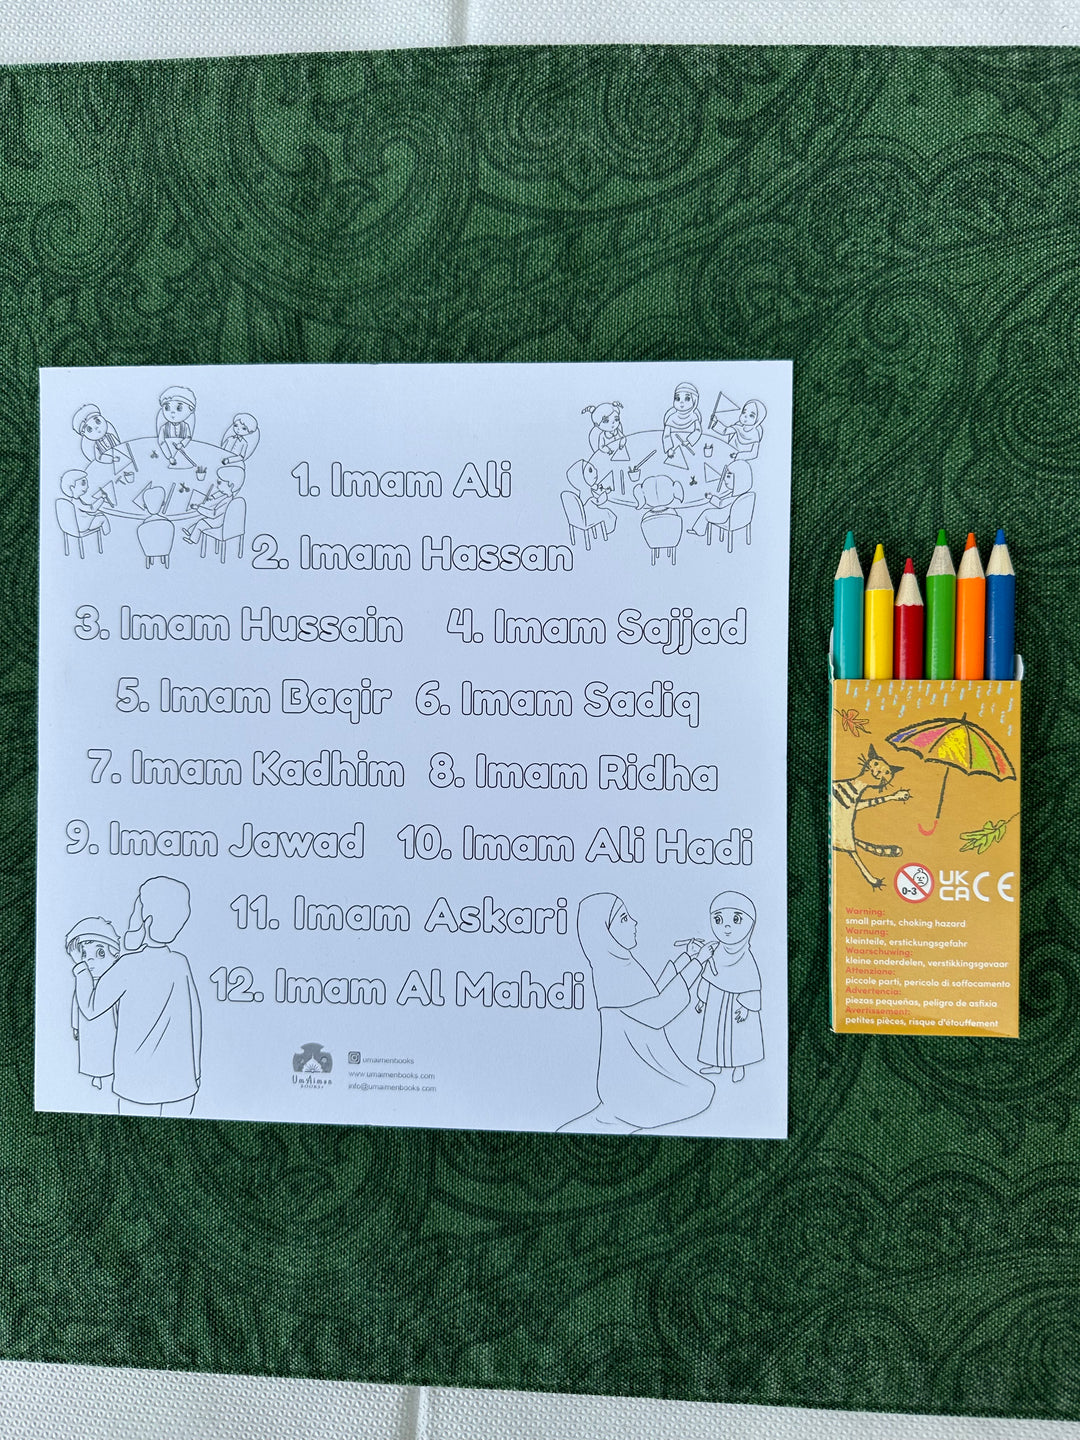 1. Imam Ali
2. Imam Hassan
3. Imam Hussain 4. Imam Sajjad
5. Imam Baqir 6. Imam Sadiq
7. Imam Kadhim 8. Imam Ridha
9. Imam Jawad 10. Imam Ali Hadi
11. Imam Askari
12. Imam Al Mahdi
UmAimen
BOOKS
umaimenbooks
www.umaimenbooks.com
info@umaimenbooks.com
0-3
UK
CA
CE
Warning:
small parts, choking hazard
Warnung:
kleinteile, erstickungsgefahr
Waarschuwing:
kleine onderdelen, verstikkingsgevaar
Attenzione:
piccole parti, pericolo di soffocamento
Advertencia:
piezas pequeñas, peligro de asfixia
Avertissement:
petites pièces, risque d'étouffement